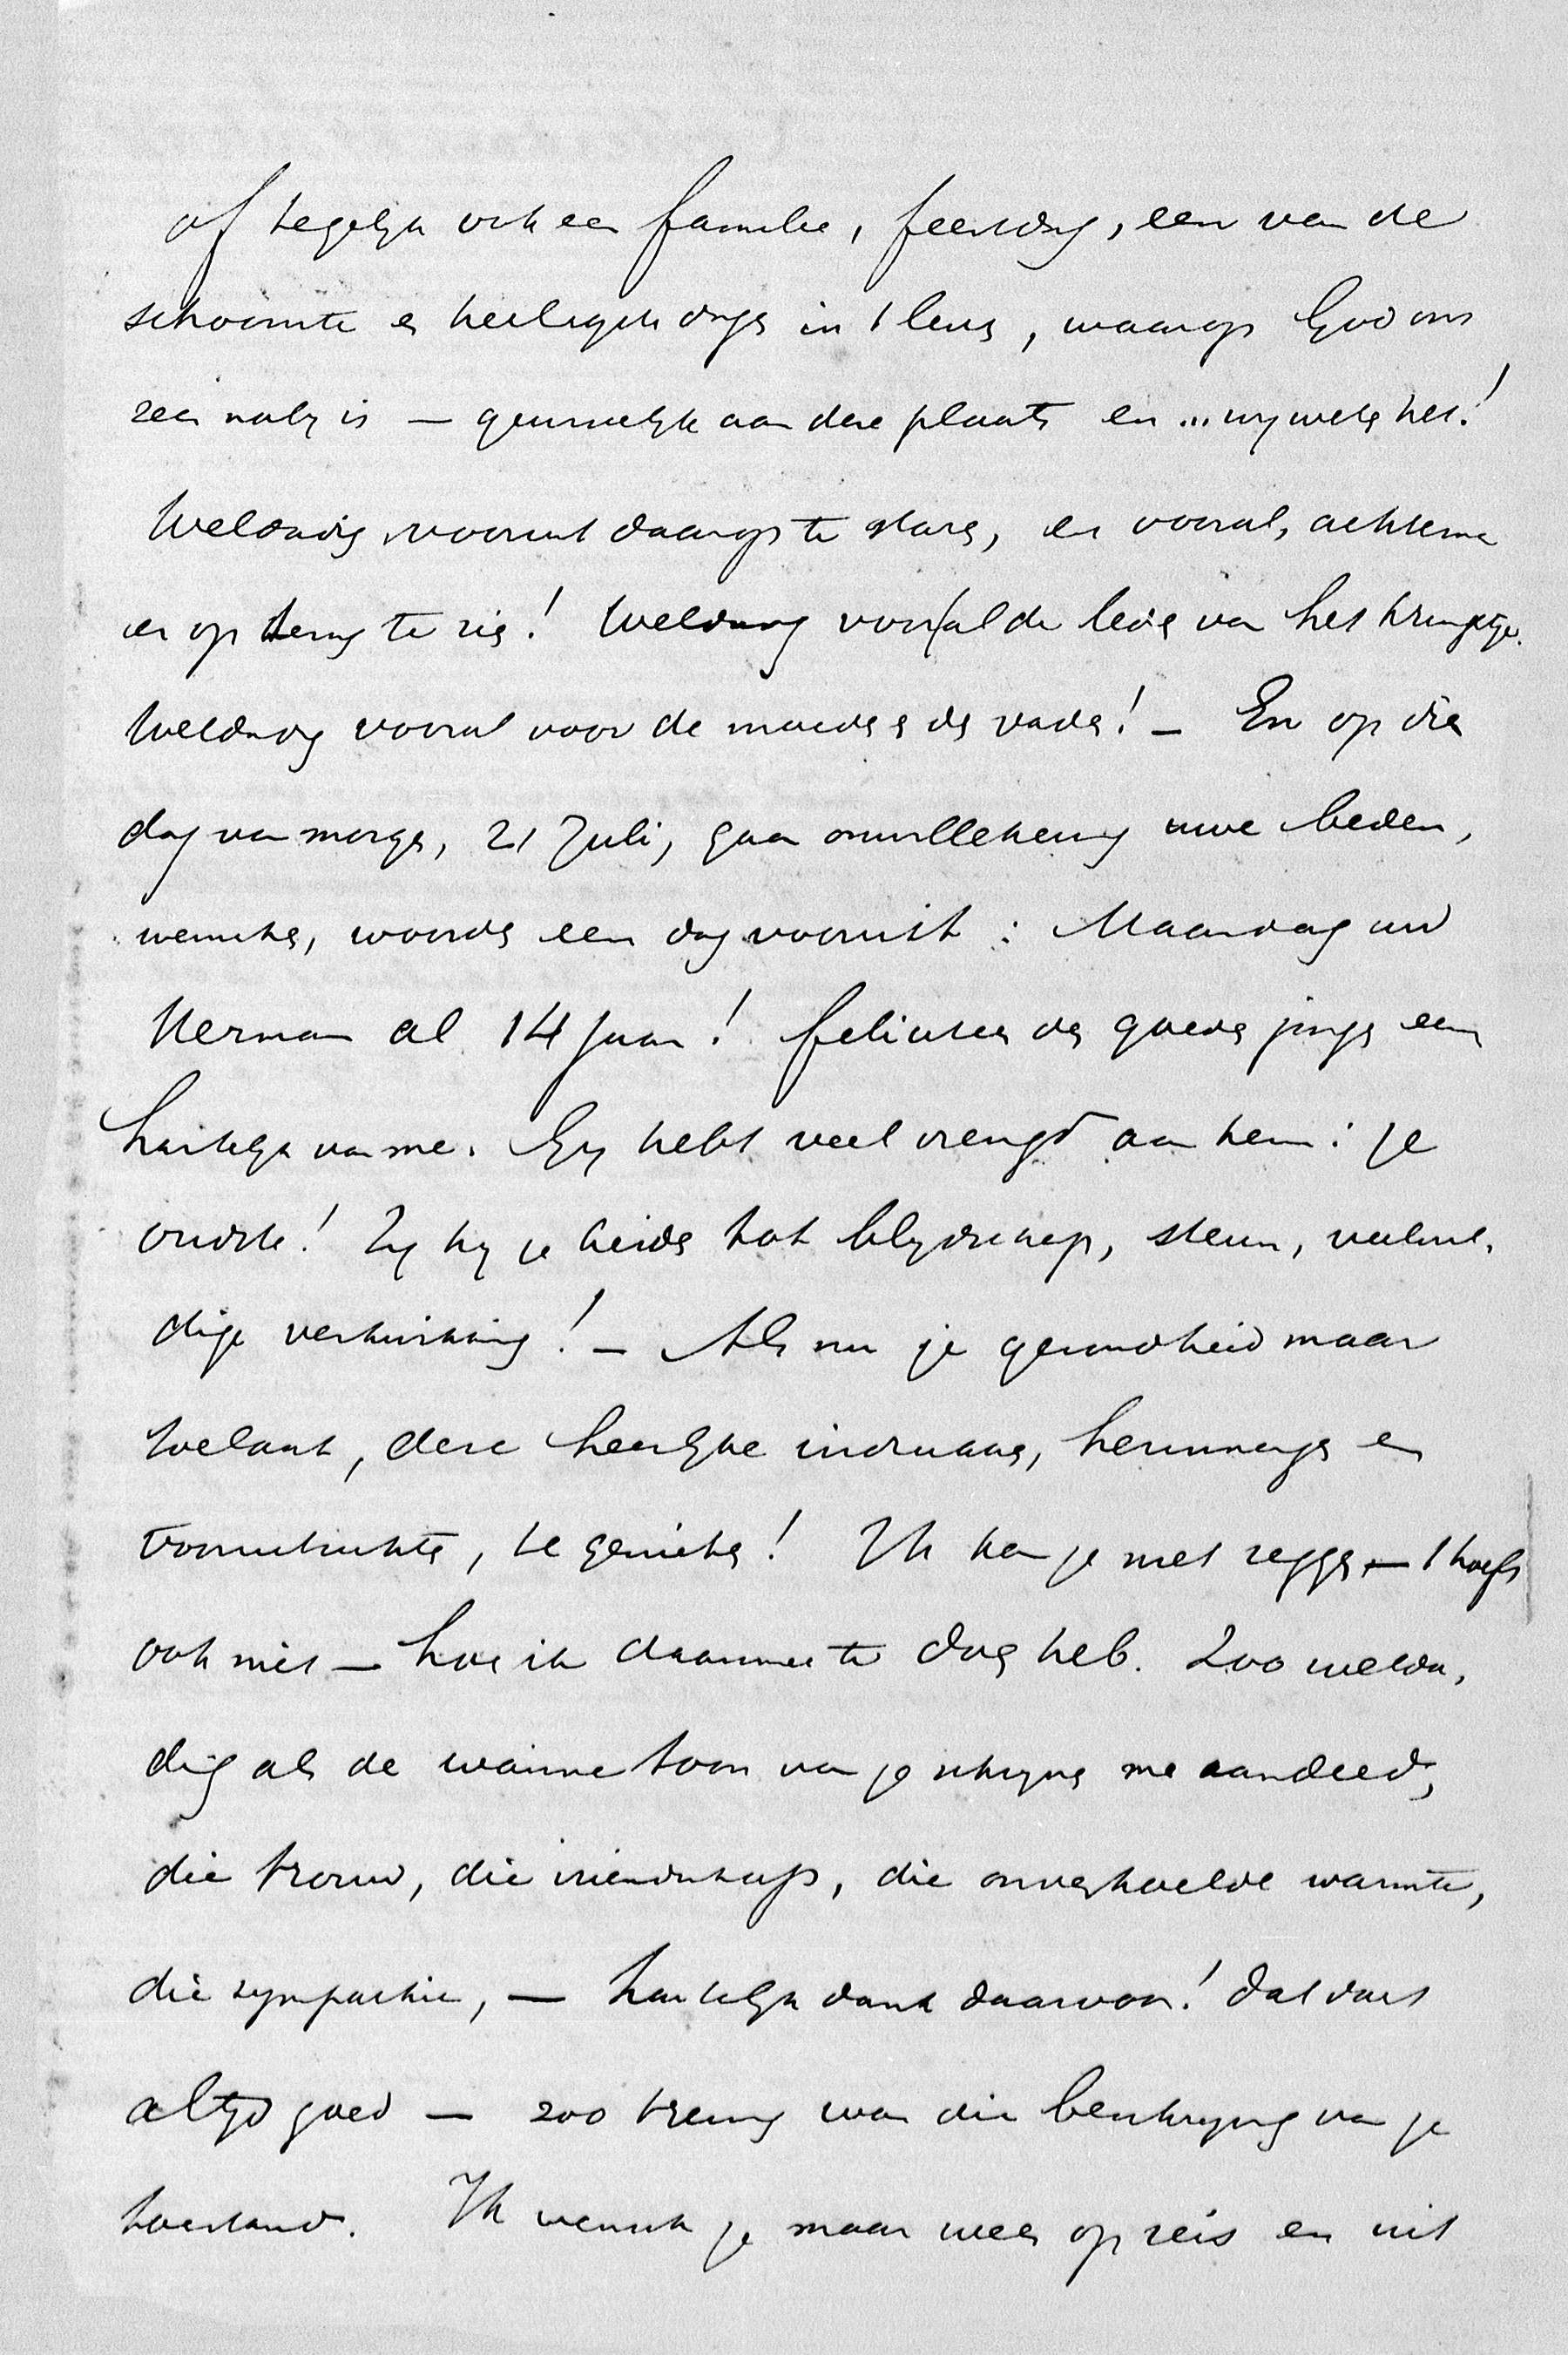 of tegelijk ook een familie, feestdag, een van de
schoonste en heiligste dagen in 't leven, waarop God ons
zeer nabij is — gewoonlijk aan deze plaats en ... wij weten het!
Weldadig vooruit daarop te staren, en vooral, achterna
er op terug te zien! Weldadig voor al de leden van het kringetje.
Weldadig vooral voor de moeder en de vader! — En op dien
dag van morgen, 21 Juli, gaan onwillekeurig uwe beden,
wenschen, woorden een dag vooruit: Maandag uw
Herman al 14 jaar! feliciteer den goeden jongen een
hartelijk van me. Gij hebt veel vreugd aan hem: je
oudste! Zij hij je beiden tot blijdschap, steun, veelvul-
dige verkwikking! — Als nu je gezondheid maar
toelaat, deze heerlijke indrukken, herinneringen en
vooruitzichten, te genieten! Ik kan je niet zeggen — 't hoeft
ook niet — hoe ik daarmee te doen heb. Zoo welda-
dig als de warme toon van je schrijven me aandeed,
die trouw, die vriendschap, die onverkoelde warmte,
die sympathie, — hartelijk dank daarvoor! dat doet
altijd goed — zoo treurig was die beschrijving van je
toestand. Ik wensch je maar weer op reis en uit